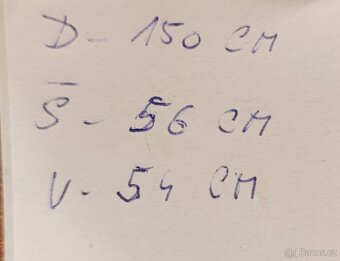 D - 150 CM
Š - 56 CM
V - 54 CM
© Bazos.cz